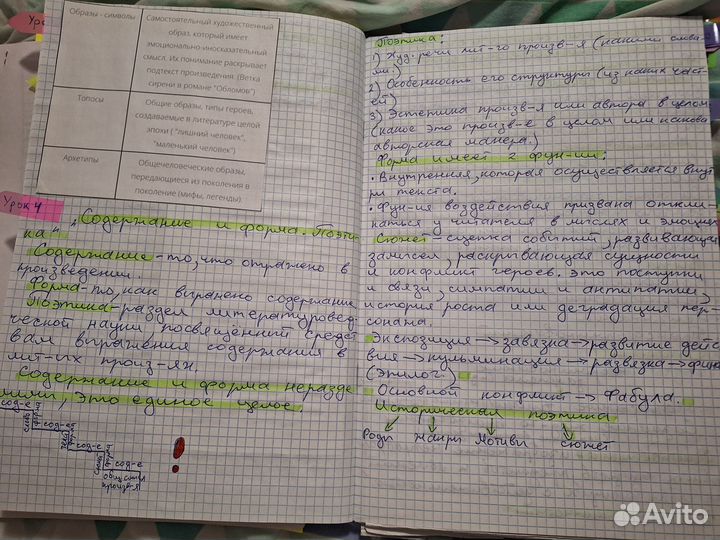 Образы - символы
Самостоятельный художественный
образ, который имеет
эмоционально-иносказательный
смысл. Их понимание раскрывает
подтекст произведения. (Ветка
сирени в романе "Обломов")
Топосы
Общие образы, типы героев,
создаваемые в литературе целой
эпохи ( "лишний человек",
"маленький человек")
Архетипы
Общечеловеческие образы,
передающиеся из поколения в
поколение (мифы, легенды)
Урок 4
„Содержание и форма. Поэти-
ка"
Содержание - то, что отражено в
произведении.
Форма - то, как выражено содержание
Поэтика - раздел литературовед-
ческой науки, посвящённый средст
вам выражения содержания в
лит-их произ-ях.
Содержание и форма неразде
лимы, это единое целое.
сод-е
форма
сод-е
форма
сод-е
форма
сод-е
общ. смысл
произв-я
Поэтика:
1) Худ. речи лит-го произв-я (какими слова
ми.)
2) Особенность его структуры (из каких част-
ей)
3) Эстетика произв-я или автора в целом
(какое это произв-е в целом или какова
авторская манера.)
Форма имеет 2 фун-ии:
• Внутренняя, которая осуществляется внут
ри текста.
• Фун-ия воздействия призвана отклик-
нуться у читателя в мыслях и эмоциях
Сюжет - сцепка событий, развивающая
замысел, раскрывающая сущности
и конфликт героев. Это поступки
и связи, симпатии и антипатии,
история роста или деградации пер-
сонажа.
Экспозиция → завязка → развитие дейс
вия → кульминация → развязка → фина
(Эпилог.)
Основной конфликт → Фабула.
Историческая поэтика
Роды Жанры Мотивы сюжет
Avito